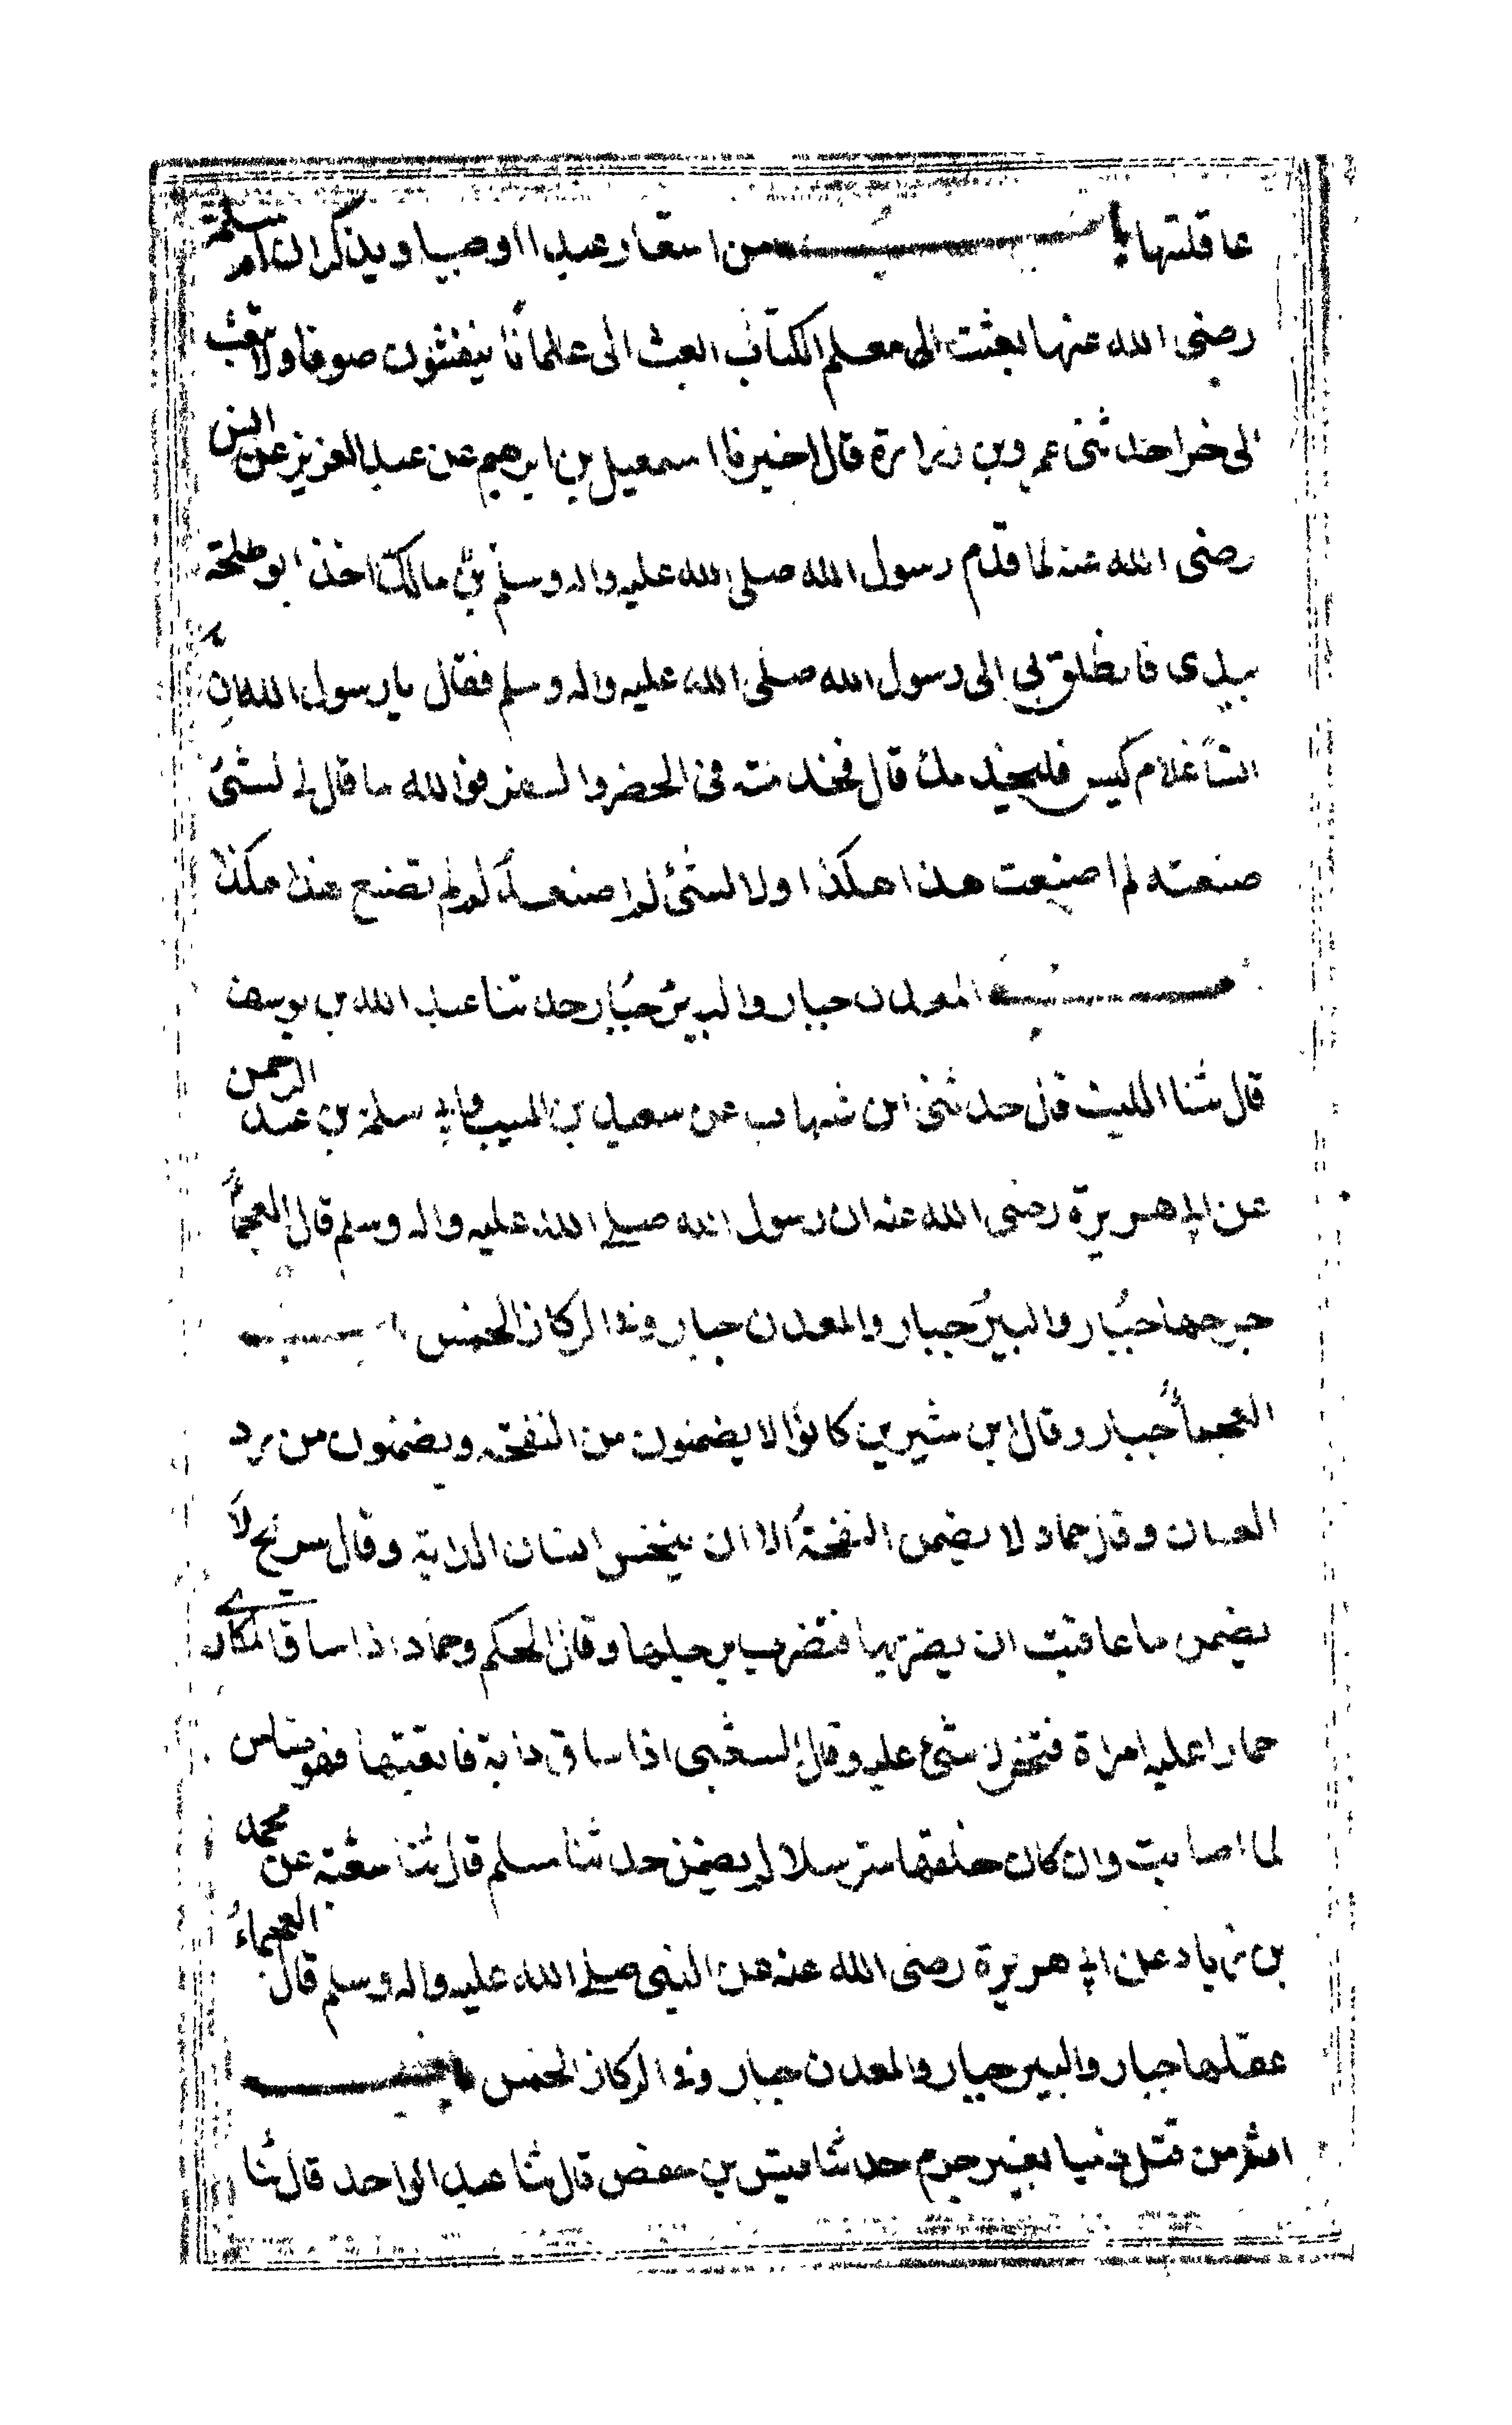 عاقلتها باب من استعار عبدا اوصبيا ويذكر ان ام سلمة
رضى الله عنها بعثت الى معلم الكتاب ابعث الى غلمانا ينفشون صوفا ولا تبعث
الى حرا حدثنى عمرو بن زرارة قال اخبرنا اسمعيل بن ابرهيم عن عبد العزيز عن انس
رضى الله عنه لما قدم رسول الله صلى الله عليه واله وسلم بن مالك اخذ ابو طلحة
بيدى فانطلق بى الى رسول الله صلى الله عليه واله وسلم فقال يا رسول الله ان
انسا غلام كيس فليخدمك قال فخدمته فى الحضر والسفر فو الله ما قال لى لشئ
صنعته لم صنعت هذا هكذا ولا لشئ لم اصنعه لم لم تصنع هذا هكذا
باب المعدن جبار والبير جبار حدثنا عبد الله بن يوسف
قال ثنا الليث قال حدثنى ابن شهاب عن سعيد بن المسيب وابى سلمة بن عبد الرحمن
عن ابى هريرة رضى الله عنه ان رسول الله صلى الله عليه واله وسلم قال العجماء
جرحها جبار والبير جبار والمعدن جبار وفى الركاز الخمس باب
العجماء جبار وقال ابن سيرين كانوا لا يضمنون من النفحة ويضمنون من رد
العنان وقال حماد لا يضمن النفحة الا ان ينخس انسان الدابة وقال شريح لا
يضمن ما عاقبت ان يضربها فتضرب برجلها وقال الحكم وحماد اذا ساق المكارى
حمارا عليه امراة فتخر لا شئ عليه وقال الشعبى اذا ساق دابة فاتعبها فهو ضامن
لما اصابت وان كان خلفها مترسلا لم يضمن حدثنا مسلم قال ثنا شعبة عن محمد
بن زياد عن ابى هريرة رضى الله عنه عن النبى صلى الله عليه واله وسلم قال العجماء
عقلها جبار والبير جبار والمعدن جبار وفى الركاز الخمس باب
اثم من قتل ذميا بغير جرم حدثنا قيس بن حفص قال ثنا عبد الواحد قال ثنا